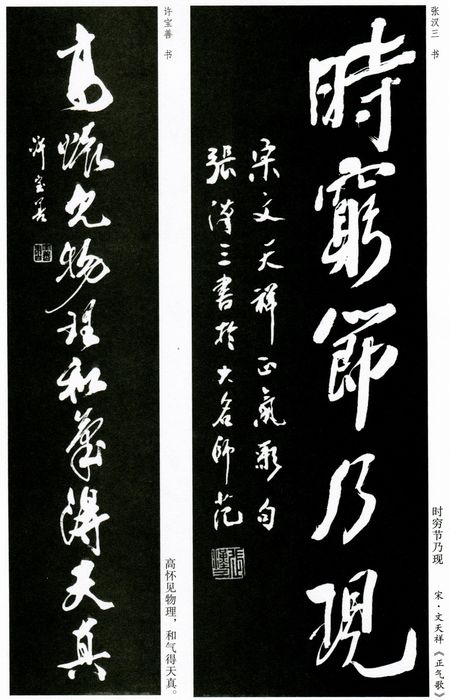 张汉三 书
時窮節乃現
宋文天祥正氣歌句
張漢三書於大名師范
时穷节乃现 宋·文天祥《正气歌》
许宝善 书
高懷見物理和氣得天真
許宝善
高怀见物理，和气得天真。